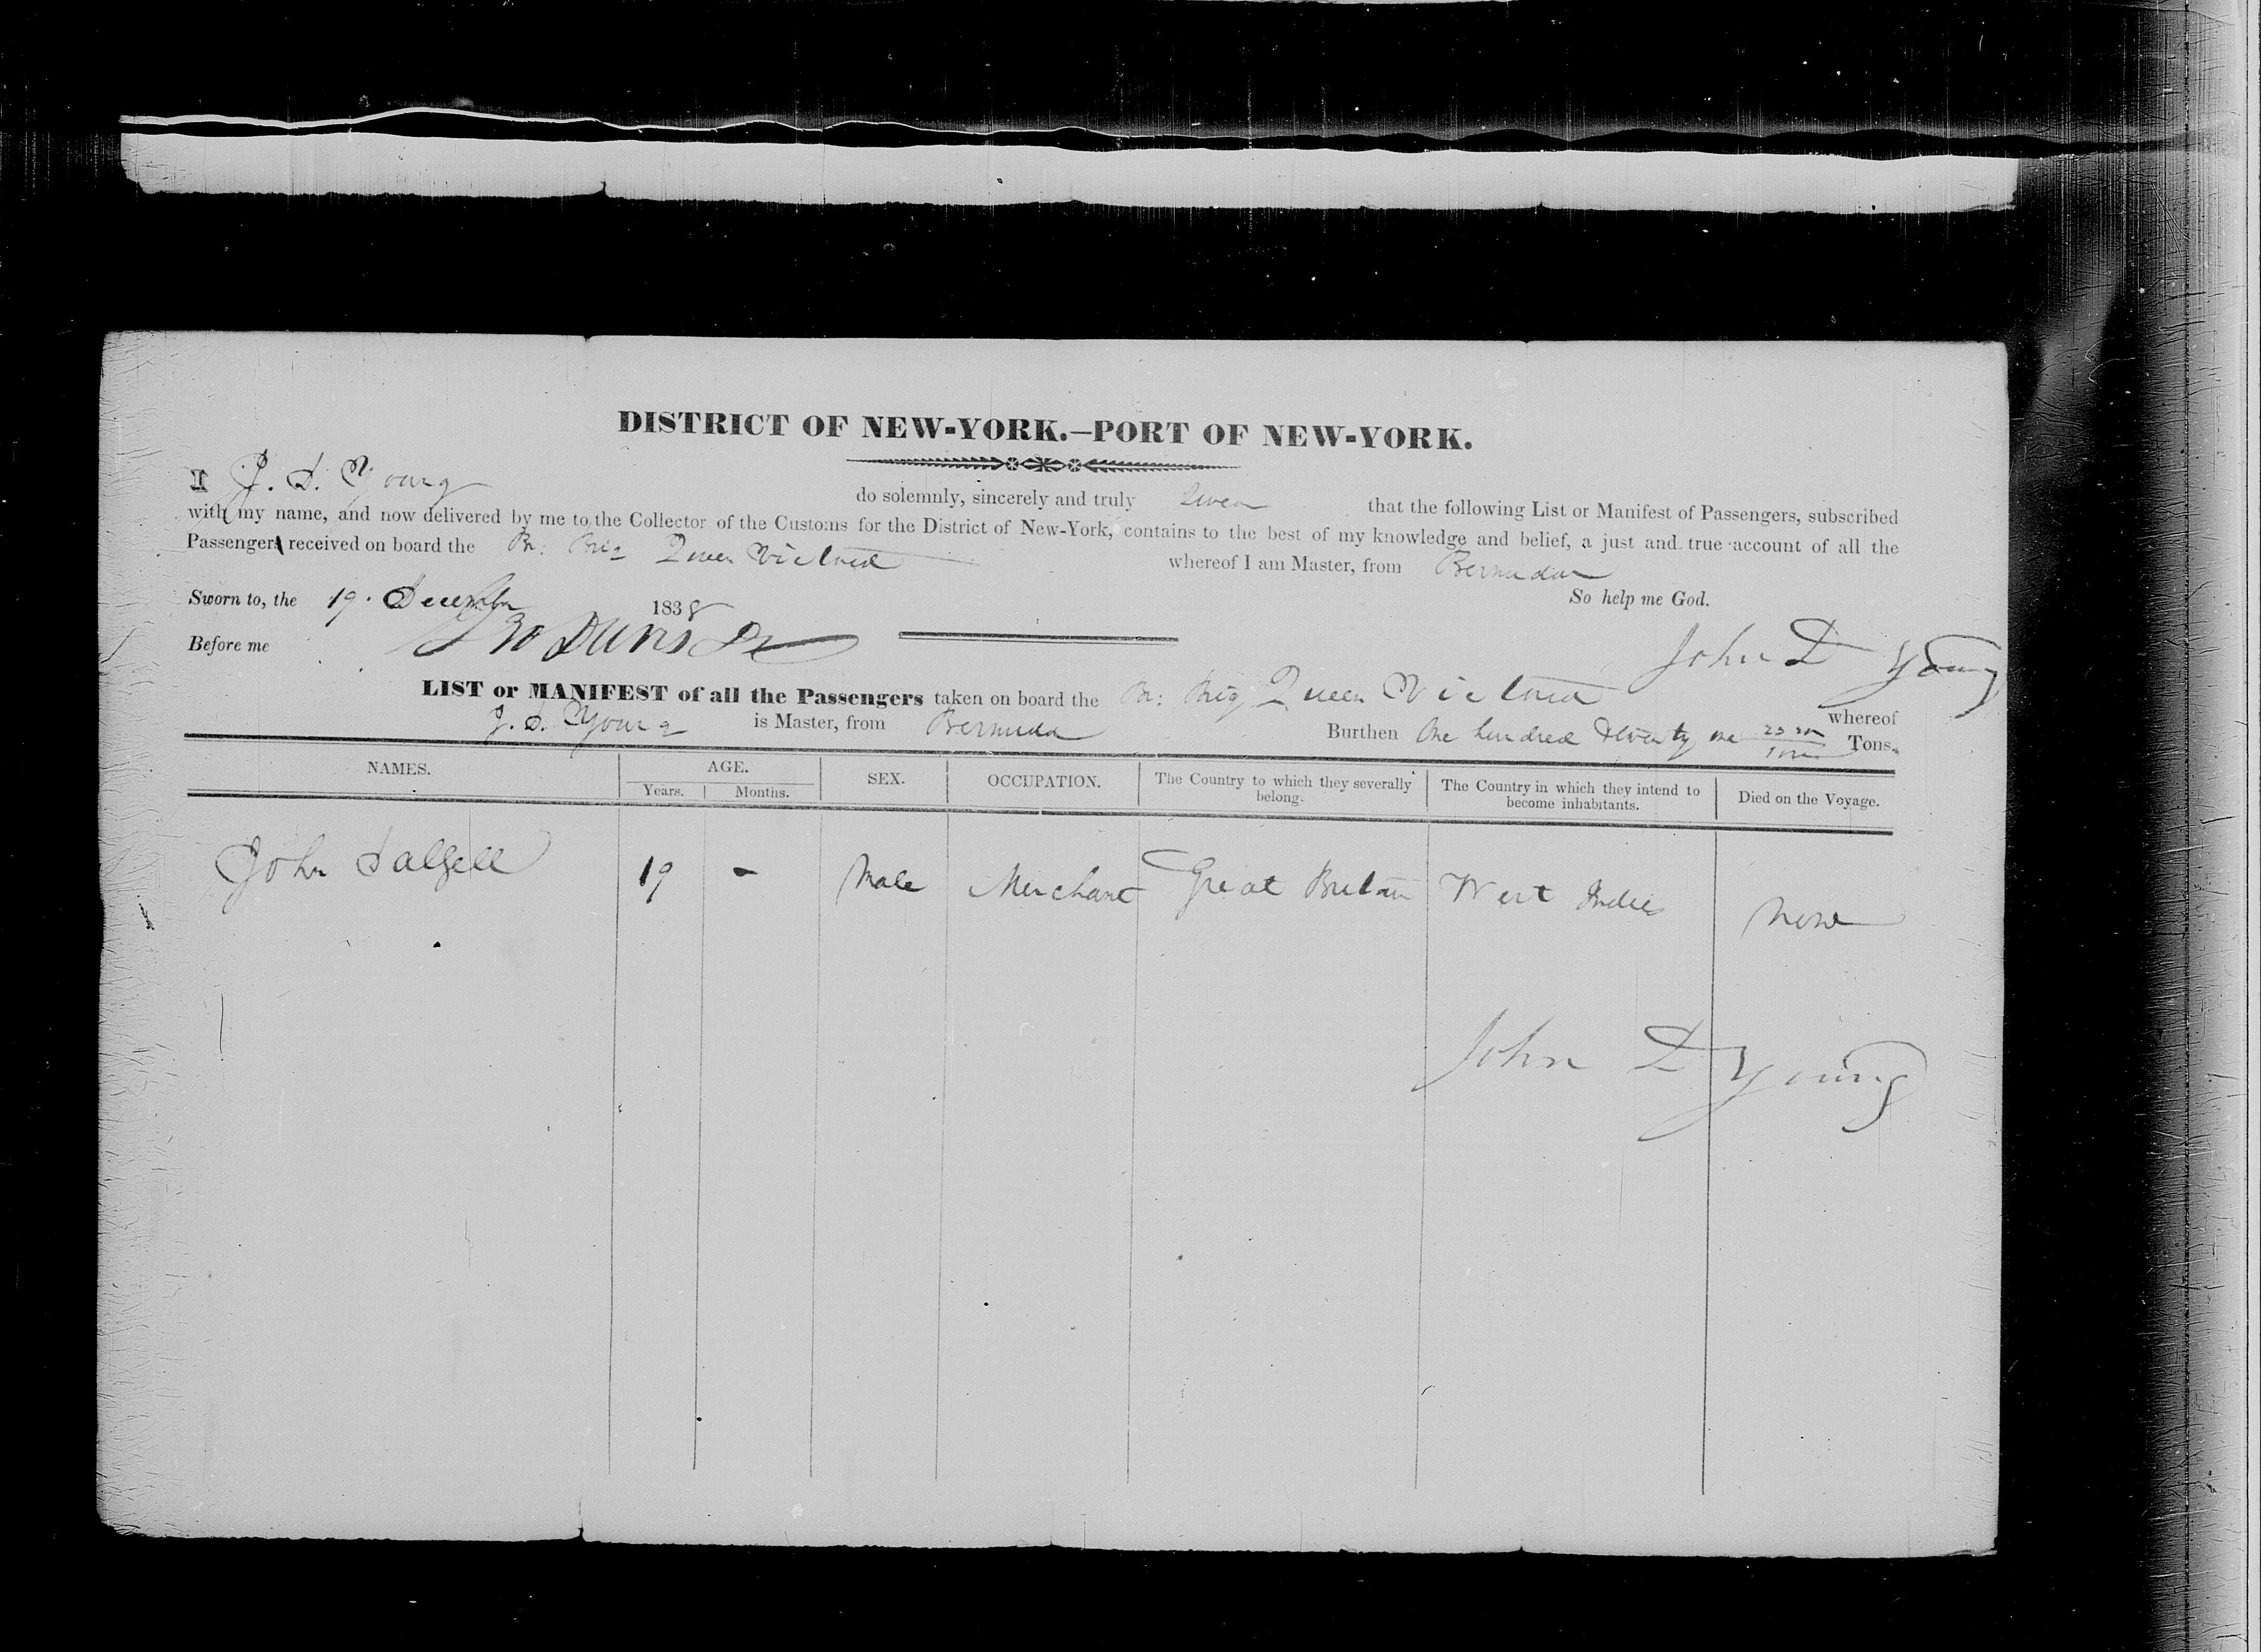 DISTRICT OF NEW-YORK.—PORT OF NEW-YORK.
I J. D. Young do solemnly, sincerely and truly swear that the following List or Manifest of Passengers, subscribed
with my name, and now delivered by me to the Collector of the Customs for the District of New-York, contains to the best of my knowledge and belief, a just and true account of all the
Passengers received on board the Br: Brig Queen Victoria whereof I am Master, from Bermuda
Sworn to, the 19. December 1838 So help me God.
Before me John D Young
LIST or MANIFEST of all the Passengers taken on board the Br: Brig Queen Victoria whereof
J. D. Young is Master, from Bermuda Burthen One hundred Tons.
NAMES. AGE. SEX. OCCUPATION. The Country to which they severally belong. The Country in which they intend to become inhabitants. Died on the Voyage.
Years. Months.
John Dalzell 19 - Male Merchant Great Britain West Indies None
John D Young